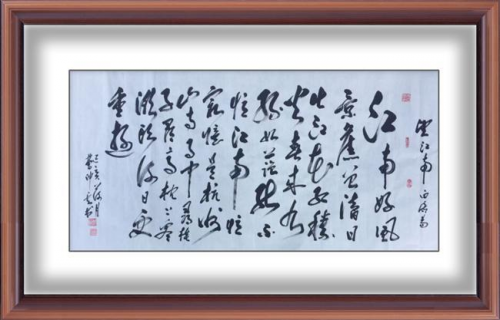 望江南 白居易
江南好風
景舊曾諳日
出江花紅勝
火春來
綠如藍能不
憶江南
最憶是杭州
山寺月中尋桂
子郡亭枕上看
潮頭何日更
重遊